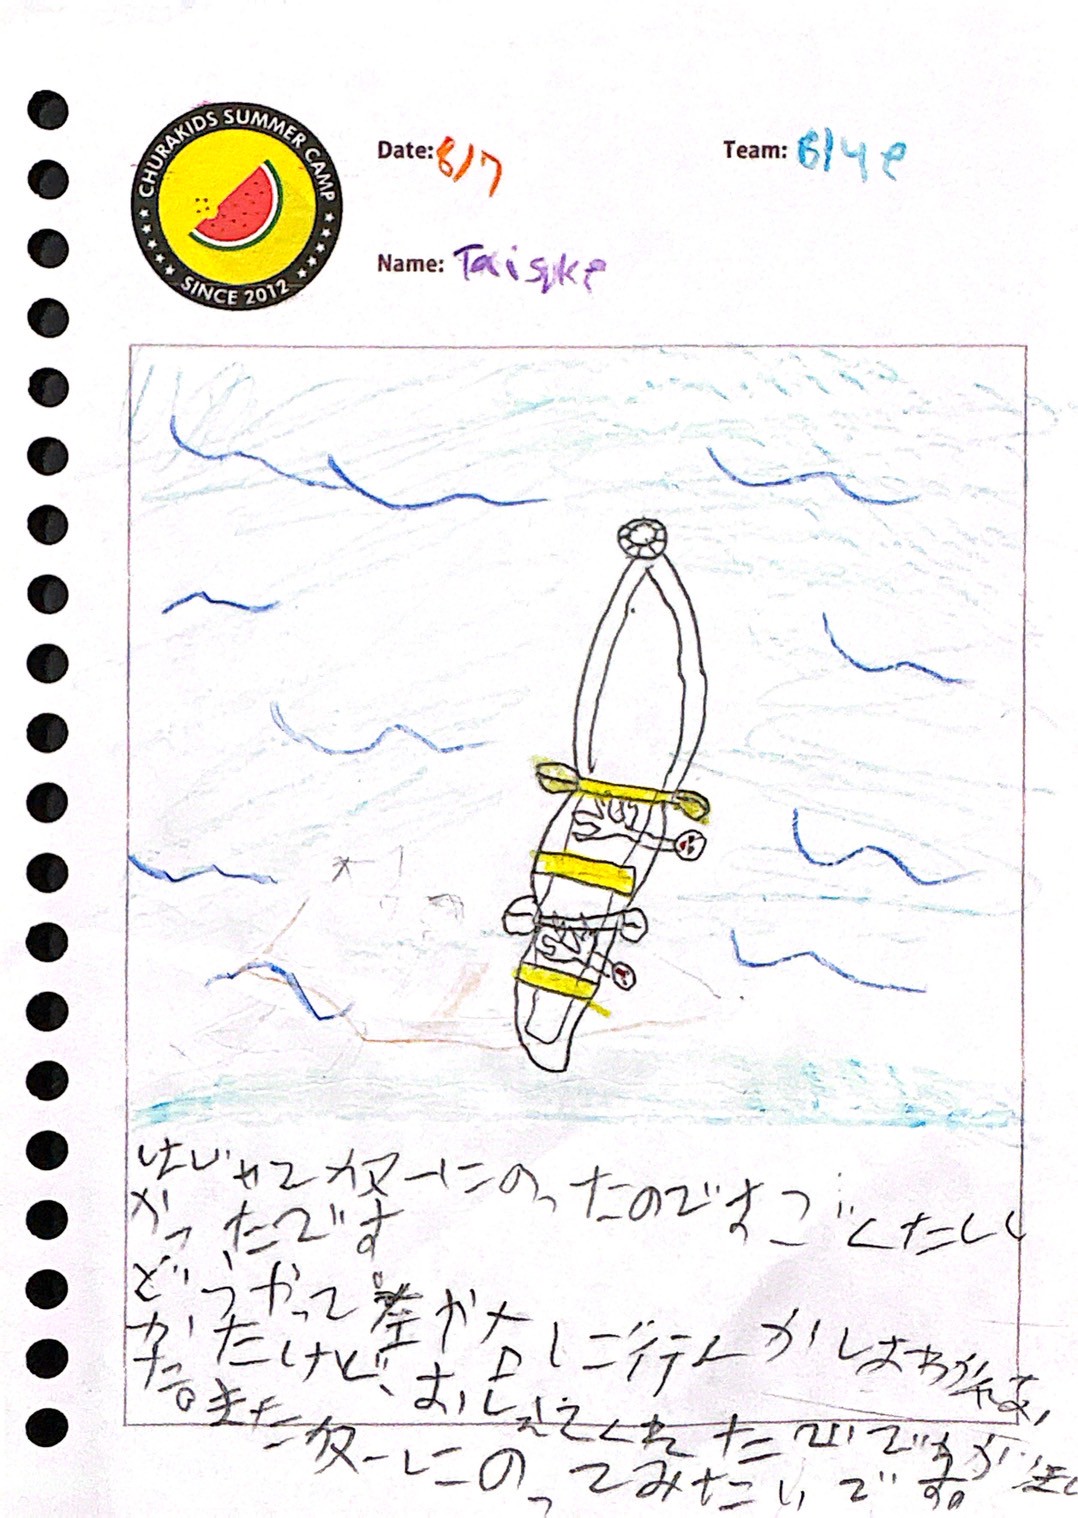 CHURAKIDS SUMMER CAMP
SINCE 2012
Date: 8/7
Team: Blue
Name: Taiske
はじめてカヌーにのったのですごくたのし
かったです
どうやって左か右に行くかはわからな
かたけど、おしえてくれた
またカヌーにのってみたいです。